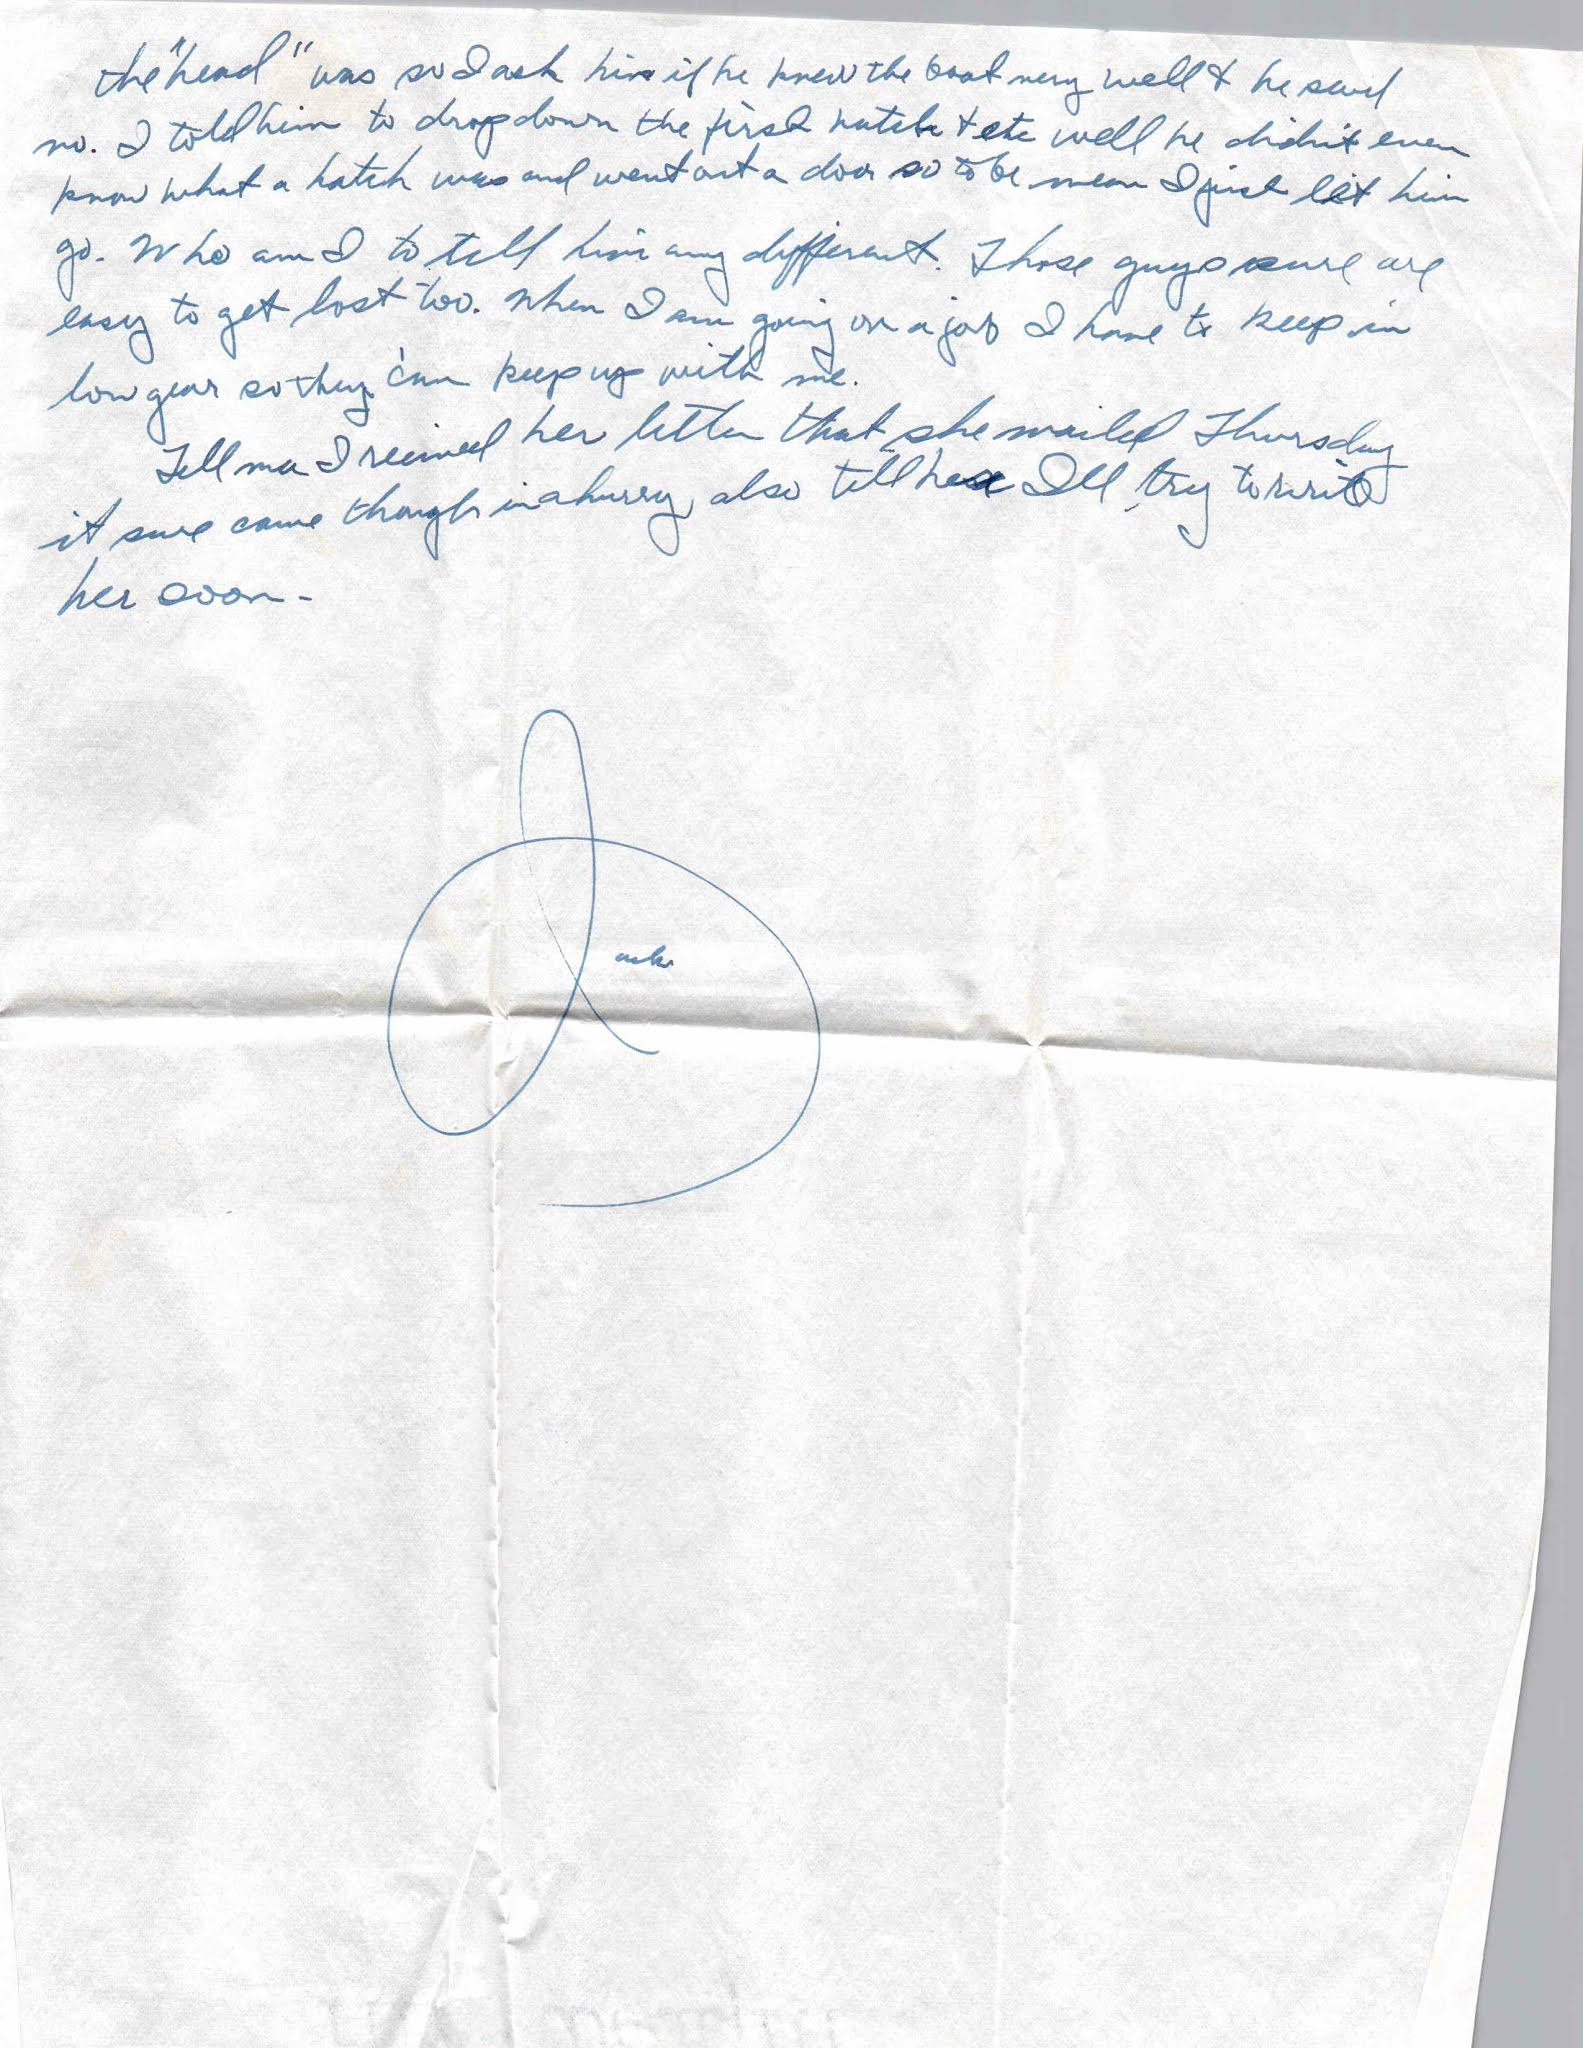 the "head" was so I ask him if he knew the boat very well & he said
no. I told him to drop down the first hatch & etc well he didn't even
know what a hatch was and went out a door so to be mean I just let him
go. Who am I to tell him any different. Those guys sure are
easy to get lost too. When I am going on a job I have to keep in
low gear so they can keep up with me.
Tell ma I recieved her letter that she mailed Thursday
it sure came though in a hurry, also tell her I'll try to write
her soon-
Jack